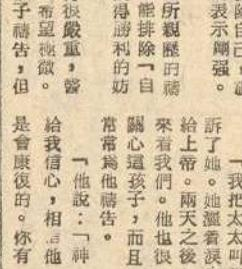 除自己，
表示剛強。
所親歷的禱
能排除「自
得勝利的妨
很嚴重，醫
希望極微。
子禱告，但
「我把太太叫
訴了她。她濕着淚
給上帝。兩天之後
來看我們。他也很
關心這孩子，而且
常常爲他禱告。
「他說：「神
給我信心，相信他
是會康復的。你有